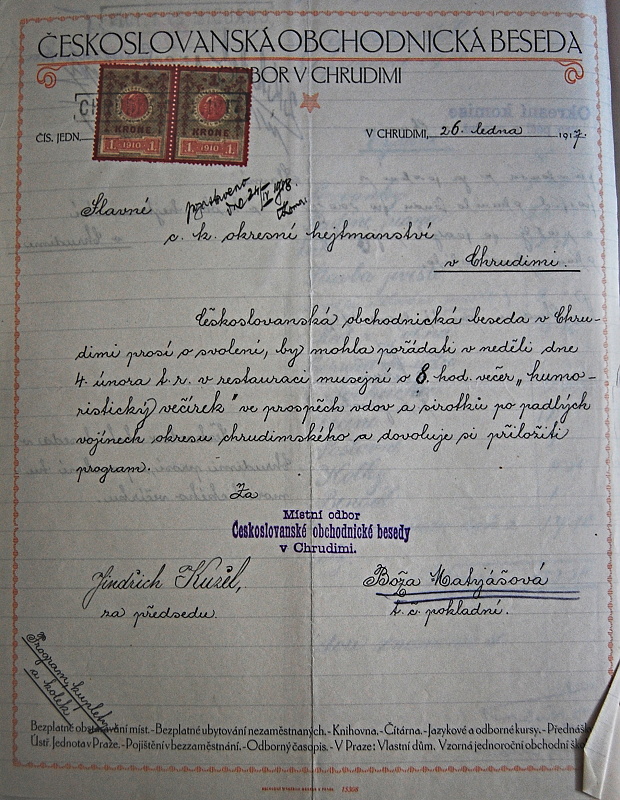 ČESKOSLOVANSKÁ OBCHODNICKÁ BESEDA
BOR V CHRUDIMI
KRONE KRONE
1 1910 1 1 1910 1
ČÍS. JEDN.
V CHRUDIMI, 26. ledna 1917.
Slavné
dne 24 IV 1918
c. k. okresní hejtmanství
v Chrudimi.
Českoslovanská obchodnická beseda v Chru-
dimi prosí o svolení, by mohla pořádati v neděli dne
4. února t. r. v restauraci musejní o 8. hod. večer „humo-
ristický večírek" ve prospěch vdov a sirotků po padlých
vojínech okresu chrudimského a dovoluje si přiložiti
program.
Za
Místní odbor
Českoslovanské obchodnické besedy
v Chrudimi.
Jindrich Kuzěl,
za předsedu.
Boža Matyjášová
t. č. pokladní.
Program, kuplety
a kolek
Bezplatné obstarávání míst. - Bezplatné ubytování nezaměstnaných. - Knihovna. - Čítárna. - Jazykové a odborné kursy. - Přednášk
Ústř. Jednota v Praze. - Pojištění v bezzaměstnání. - Odborný časopis. - V Praze: Vlastní dům. Vzorná jednoroční obchodní ško
15308